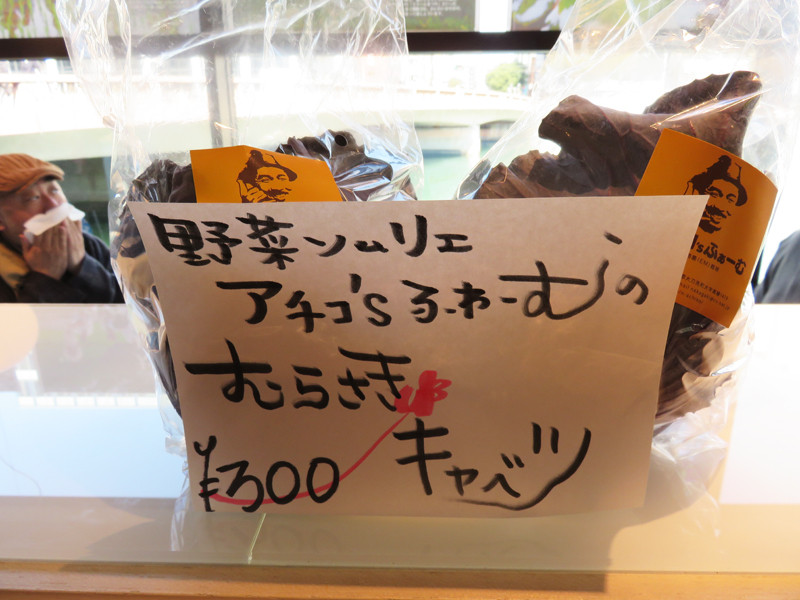 野菜ソムリエ
アチコ'sふぁーむの
むらさき
キャベツ
¥300
'sふぁーむ